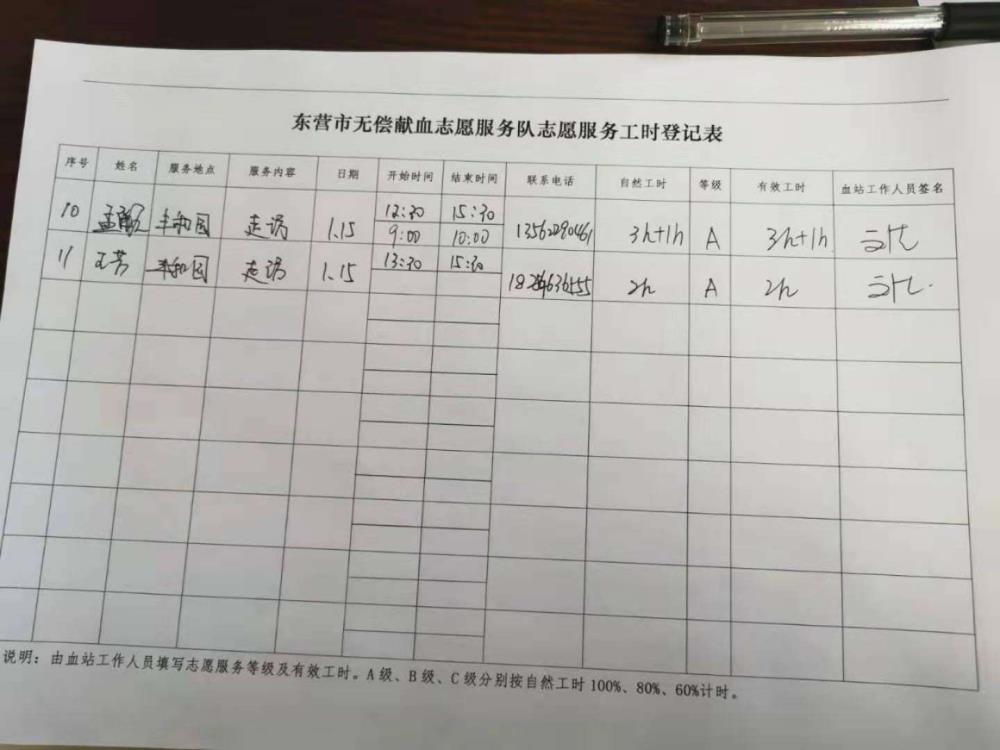 东营市无偿献血志愿服务队志愿服务工时登记表
序号 姓名 服务地点 服务内容 日期 开始时间 结束时间 联系电话 自然工时 等级 有效工时 血站工作人员签名
10 丰和园 走访 1.15 12:30 15:30 13562290461 3h+1h A 3h+1h
9:00 10:00
11 王芳 丰和园 走访 1.15 13:30 15:30 2h A 2h
说明:由血站工作人员填写志愿服务等级及有效工时。A级、B级、C级分别按自然工时100%、80%、60%计时。